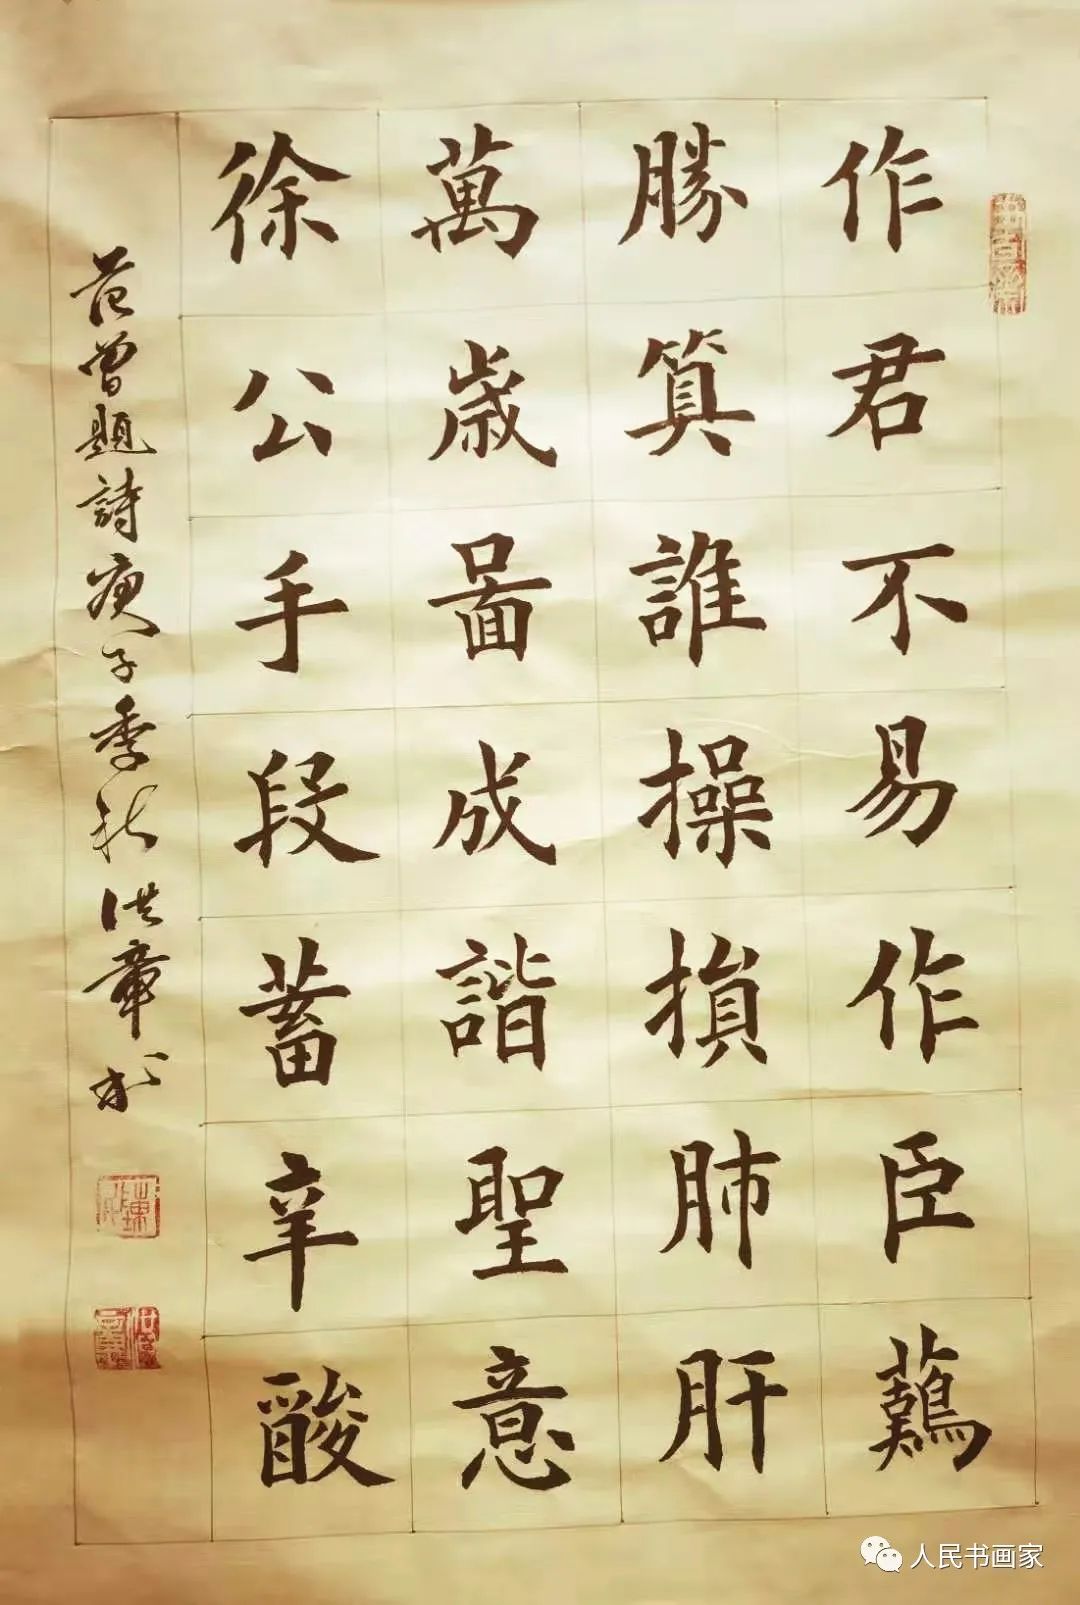 作君不易作臣難
勝算誰操損肺肝
萬歲啚成諧聖意
徐公手段蓄辛酸
范曾題詩庚子季秋洪章书
人民书画家